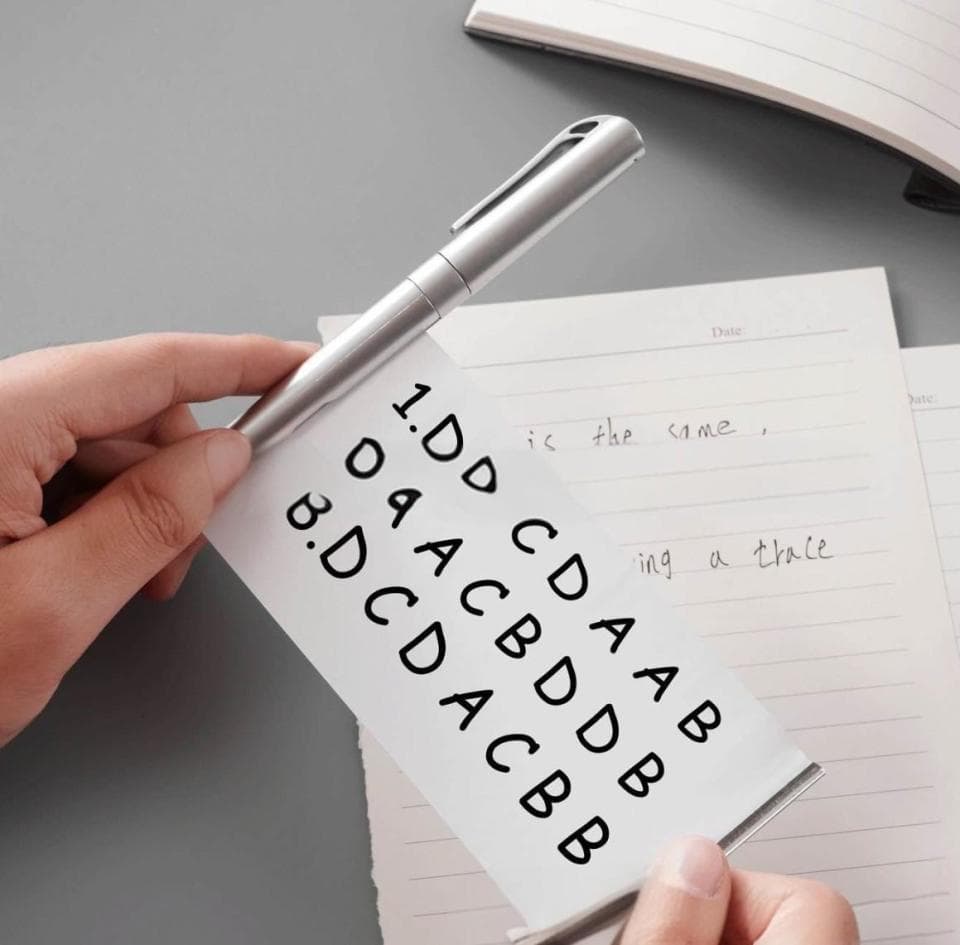 1.DD CDAAB
DAACBDDB
B.DCDACBB
Date:
is the same ,
ing a trace
Date: